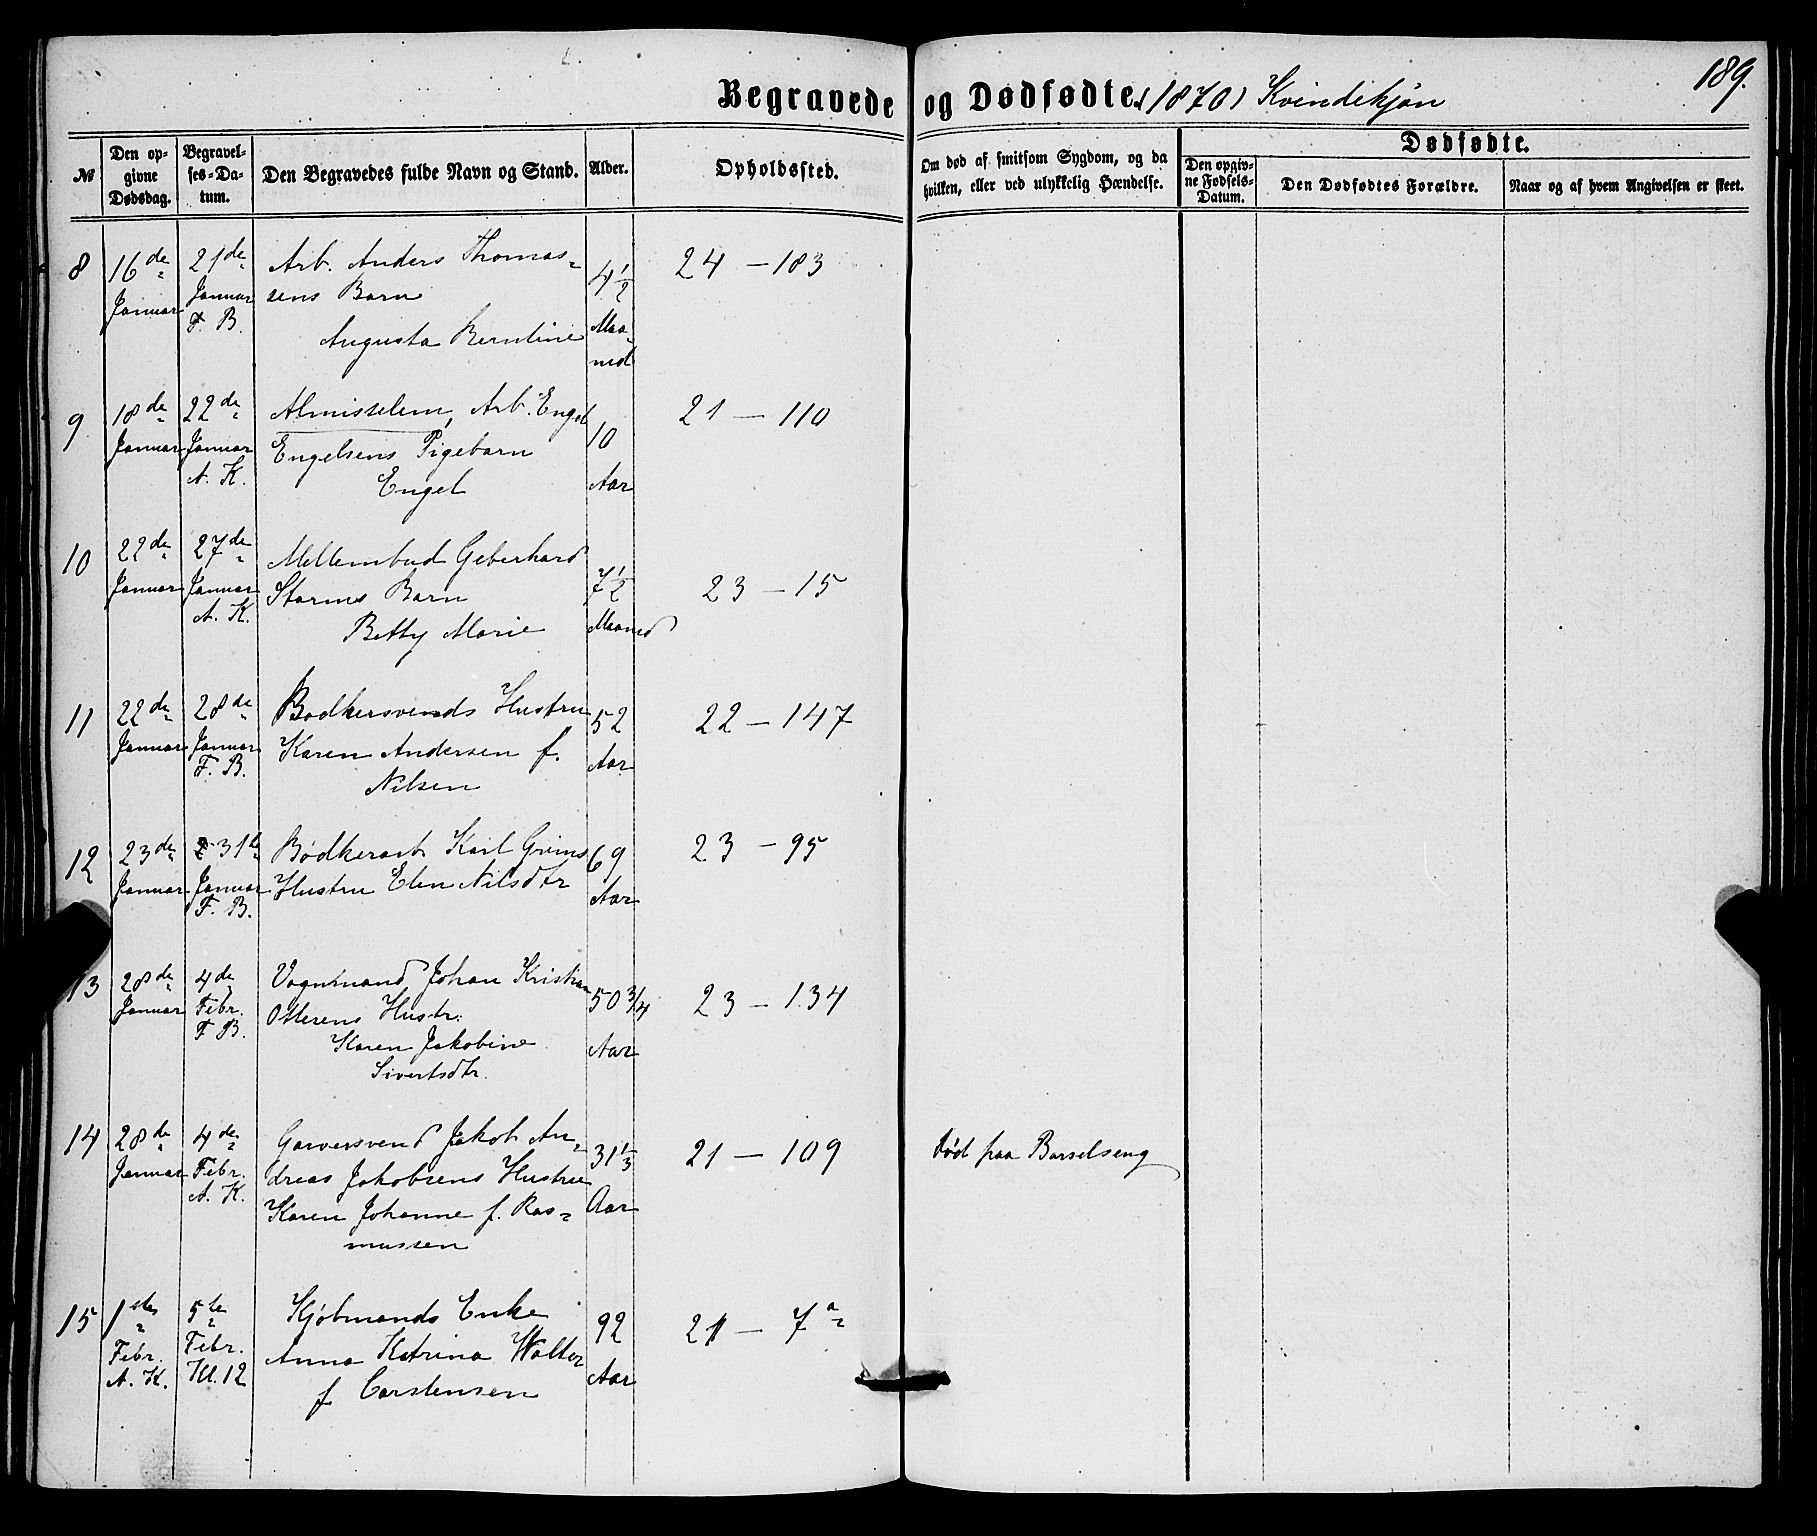 Begravede og Dødfødte. (1870) Kvindekjøn 189.
№
Den op-
givne
Dødsdag.
Begravel-
ses-Da-
tum.
Den Begravedes fulde Navn og Stand.
Alder.
Opholdssted.
Om død af smitsom Sygdom, og da
hvilken, eller ved ulykkelig Hændelse.
Dødfødte.
Den opgiv-
ne Fødsels-
Datum.
Den Dødfødtes Forældre.
Naar og af hvem Angivelsen er skeet.
8
16de
Januar
21de
Januar
F. B.
Arb. Anders Thomas=
sens Barn
Augusta Berntine
4 1/2
Maa-
ned
24 — 183
9
18de
Januar
22de
Januar
A. K.
Almisselem, Arb. Engel
Engelsens Pigebarn
Engel
10
Aar
21 — 110
10
22de
Januar
27de
Januar
A. K.
Mellembud Geberhard
Storms Barn
Betty Marie
7 1/2
Maaned
23 — 15
11
22de
Januar
28de
Januar
F. B.
Bødkersvends Hustru
Karen Andersen f.
Nilsen
52
Aar
22 — 147
12
23de
Januar
31te
Januar
F. B.
Bødkerarb. Karl Grims
Hustru Elen Nilsdtr
69
Aar
23 — 95
13
28de
Januar
4de
Febr.
F. B.
Vognmand Johan Kristian
Otterens Hustr.
Karen Jakobine
Sivertsdtr.
50 3/4
Aar
23 — 134
14
28de
Januar
4de
Febr.
A. K.
Garversvend Jakob An=
dreas Jakobsens Hustru
Karen Johanne f. Ras=
mussen
31 1/3
Aar
21 — 109
Død paa Barselseng
15
1ste
Febr.
A. K.
5te
Febr.
Kl. 12
Kjøbmands Enke
Anna Katrina Wolter
f. Carstensen
92
Aar
21 — 7a